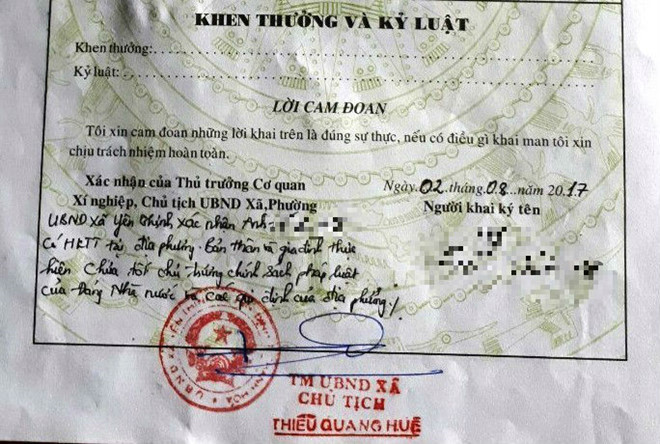 KHEN THƯỞNG VÀ KỶ LUẬT
Khen thưởng:
Kỷ luật:
LỜI CAM ĐOAN
Tôi xin cam đoan những lời khai trên là đúng sự thực, nếu có điều gì khai man tôi xin
chịu trách nhiệm hoàn toàn.
Xác nhận của Thủ trưởng Cơ quan
Xí nghiệp, Chủ tịch UBND Xã,Phường
Ngày 02 tháng 08 năm 2017
Người khai ký tên
UBND xã Yên Thịnh xác nhận Anh:
Có HKTT tại địa phương. Bản thân và gia đình thực
hiện chưa tốt chủ trương chính sách pháp luật
của Đảng Nhà nước và các qui định của địa phương./
TM UBND XÃ
CHỦ TỊCH
THIỀU QUANG HUỆ